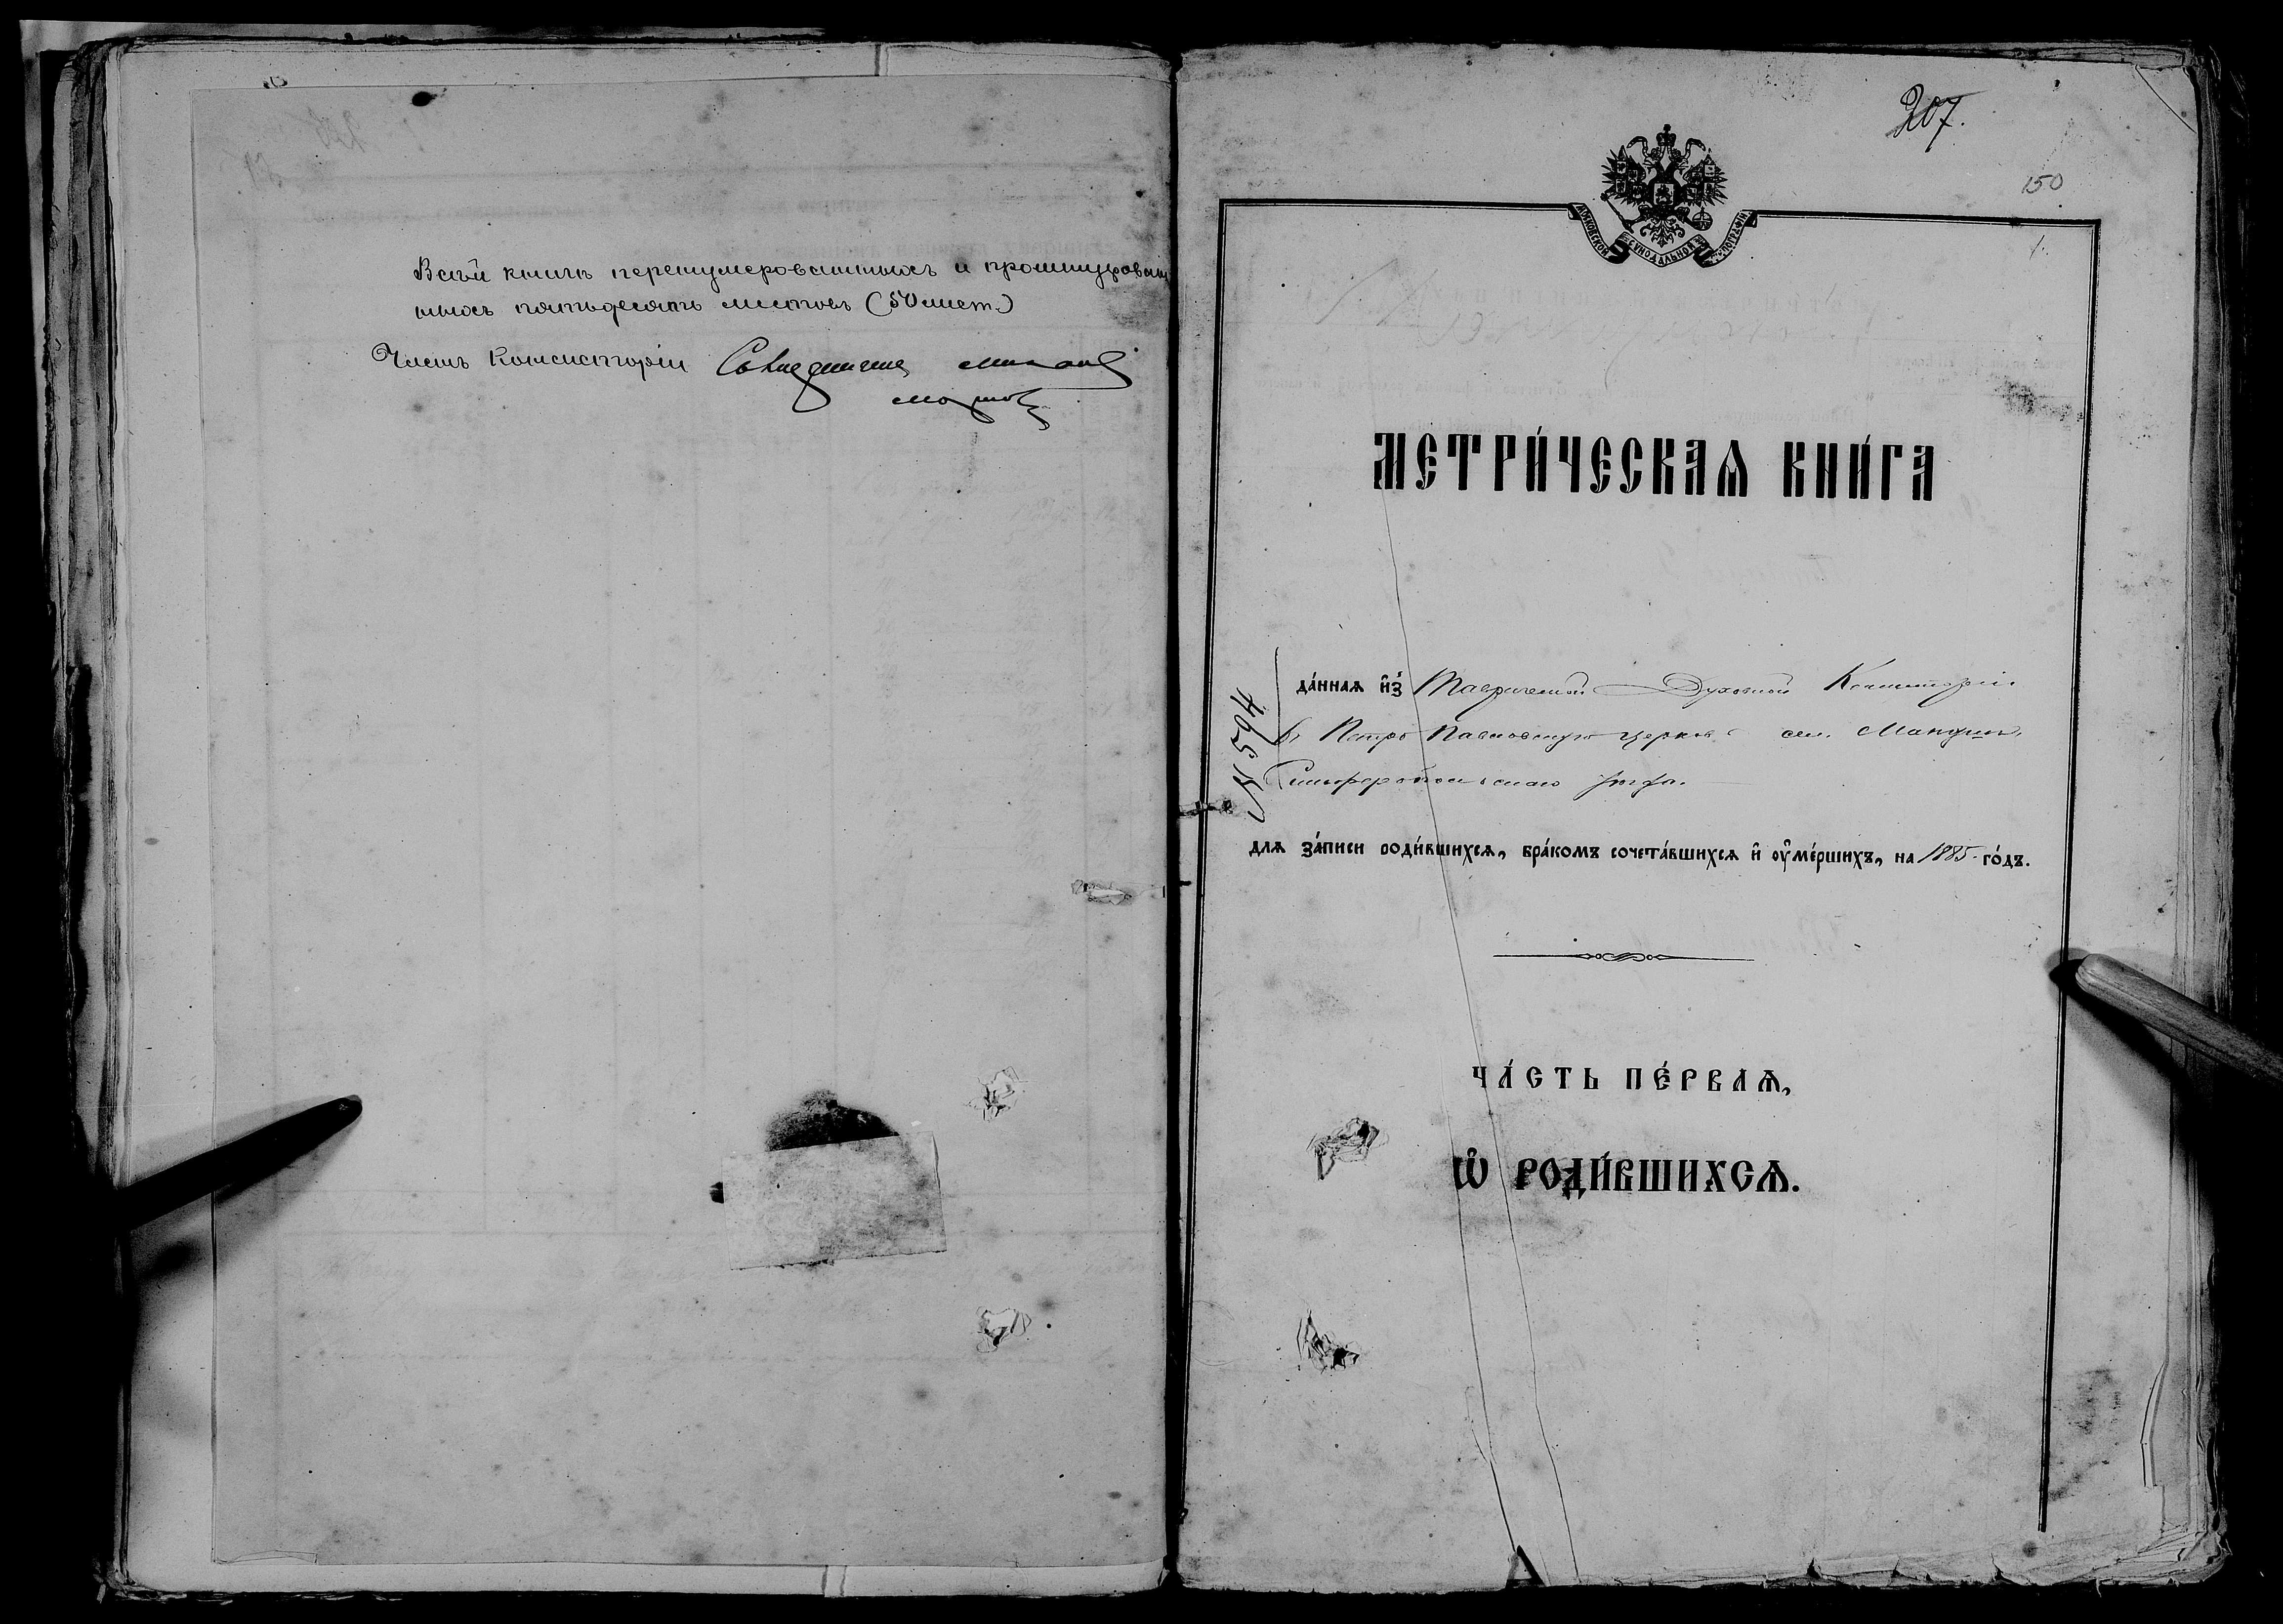 В сей книгѣ перенумерованныхъ и прошнурован
ныхъ пятьдесятъ листовъ (50 лист.)
Членъ Консисторіи Священникъ
207.
150
1.
МОСКОВСКОЙ СУНОДАЛЬНОЙ ТИПОГРАФІИ
МЕТРИ́ЧЕСКАѦ КНИ́ГА
да́ннаѧ и҆з̾ Таврической Духовной Консисторіи
въ Петро Павловскую церковь сел. Мангушъ,
Симферопольскаго уѣзда.
№ 504
длѧ за́писи роди́вшихсѧ, бра́комъ сочета́вшихсѧ и҆ ᲂу҆ме́ршихъ, на 1885 го́дъ.
ЧА́СТЬ ПЕ́РВАѦ,
Ѡ҆ РОДИ́ВШИХСѦ.